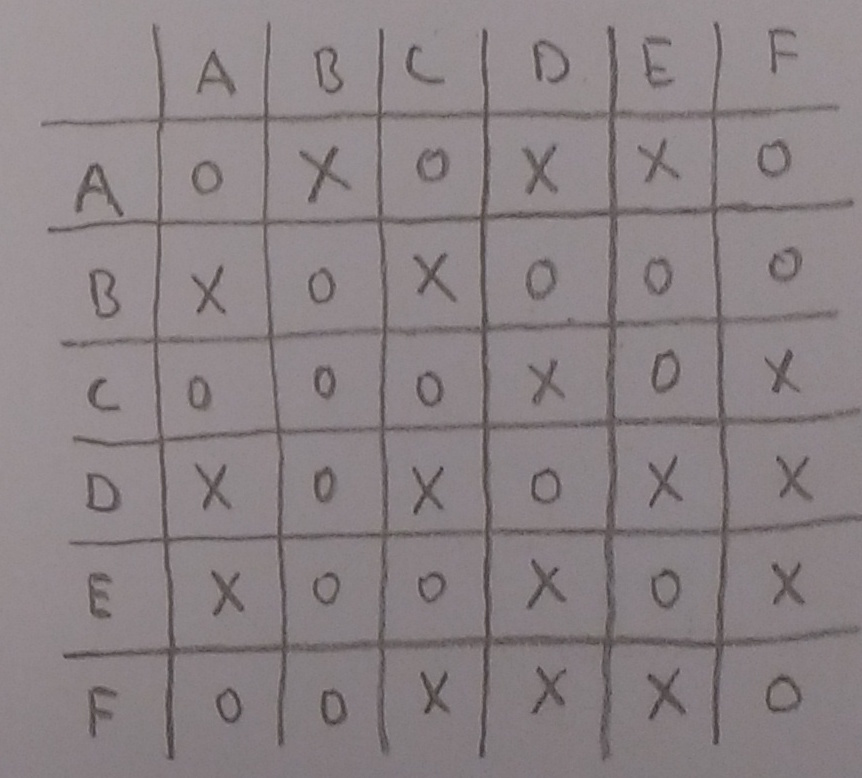 A B C D E F
A O X O X X O
B X O X O O O
C O O O X O X
D X O X O X X
E X O O X O X
F O O X X X O